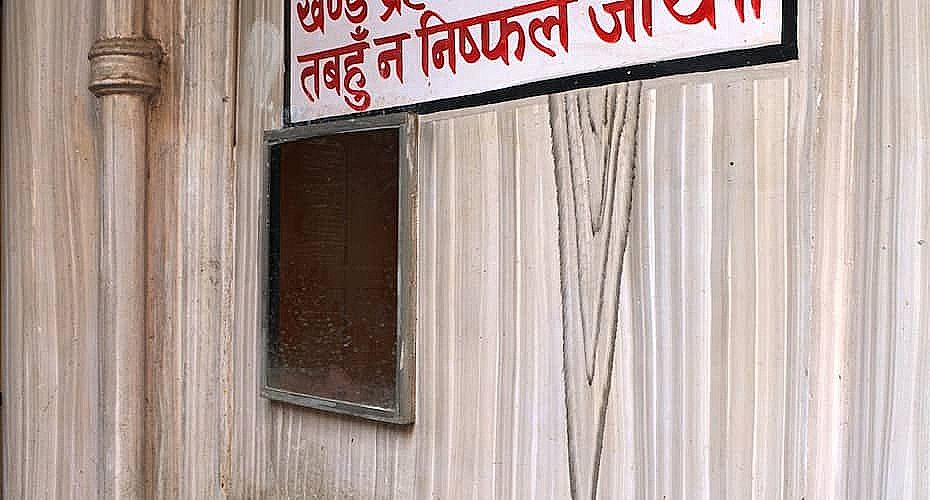 खण्ड
तबहुँ न निष्फल जाय॥